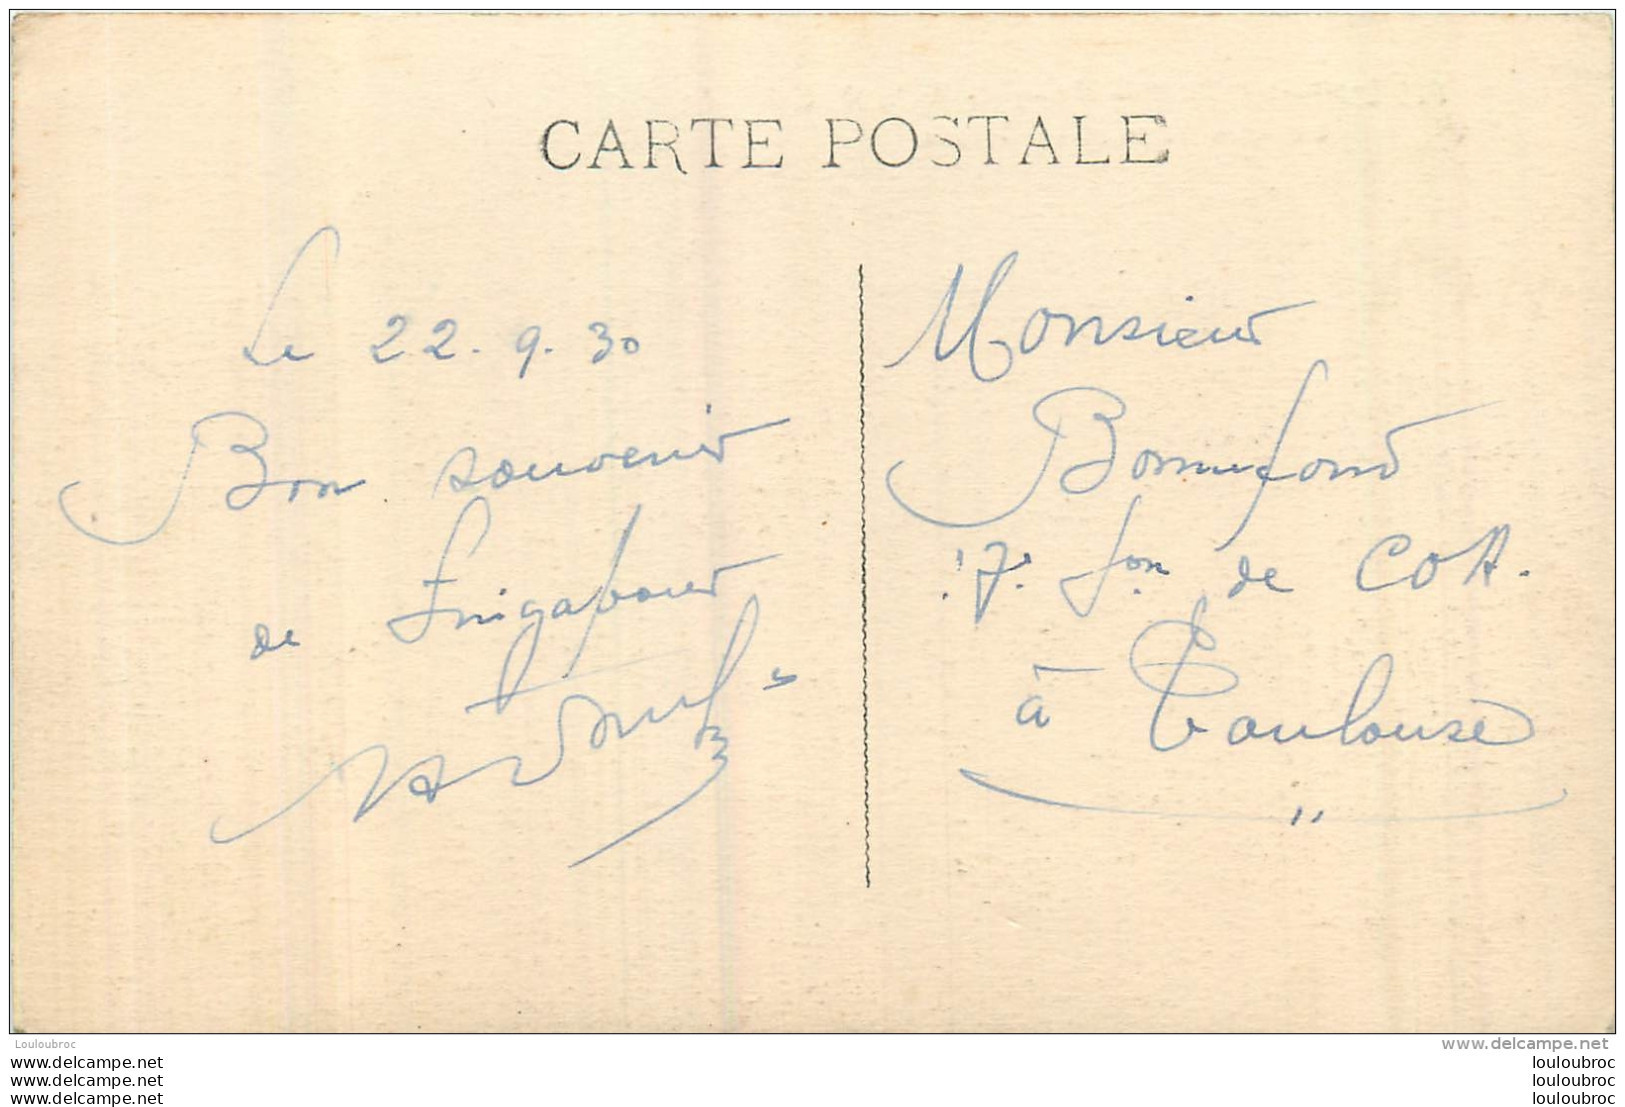 CARTE POSTALE
Le 22.9.30
Bon souvenir
de Singapour
Monsieur
Bonnefond
17e Son de COA.
à Toulouse
Louloubroc
www.delcampe.net
www.delcampe.net
www.delcampe.net
www.delcampe.net
louloubroc
louloubroc
louloubroc